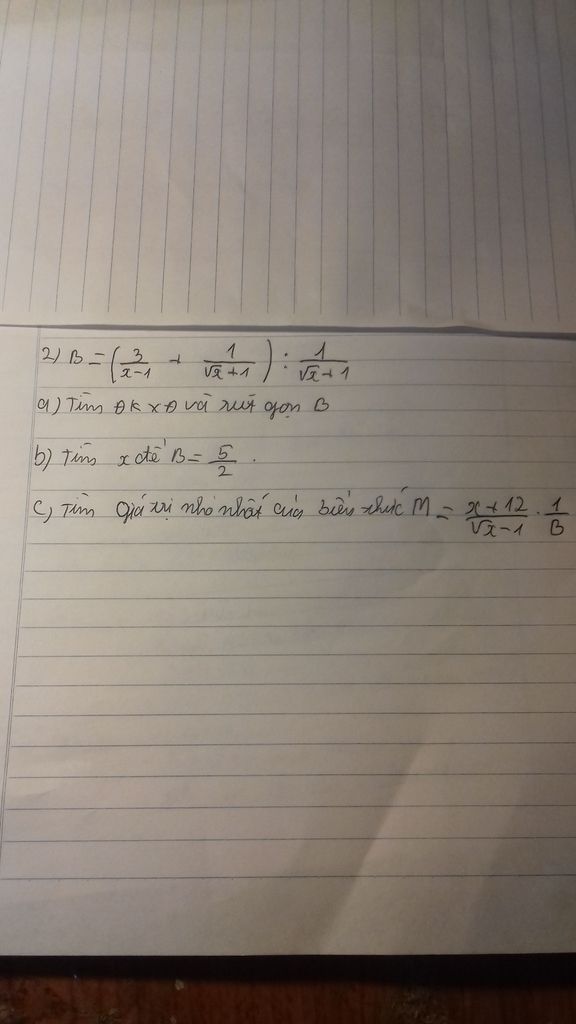 2) B = (3/(x-1) + 1/(√x+1)) : 1/(√x+1)
a) Tìm ĐKXĐ và rút gọn B
b) Tìm x để B = 5/2.
c) Tìm giá trị nhỏ nhất của biểu thức M = (x+12)/(√x-1) . 1/B